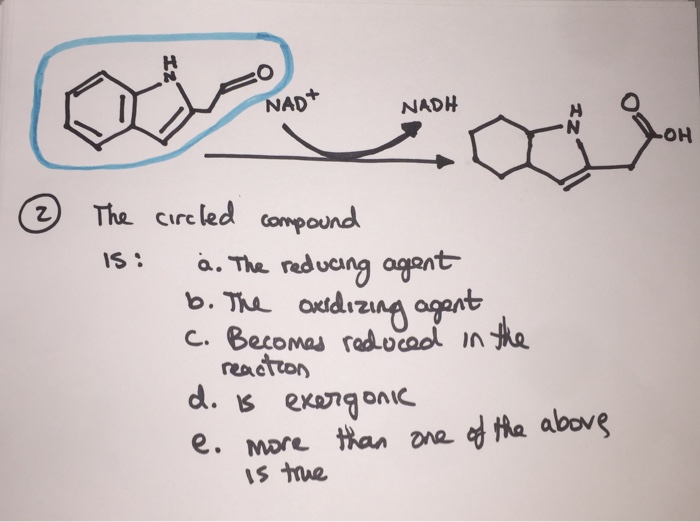 H
N
O
NAD+
NADH
H
N
O
OH
2 The circled compound
is: a. The reducing agent
b. The oxidizing agent
c. Becomes reduced in the
reaction
d. is exergonic
e. more than one of the above
is true